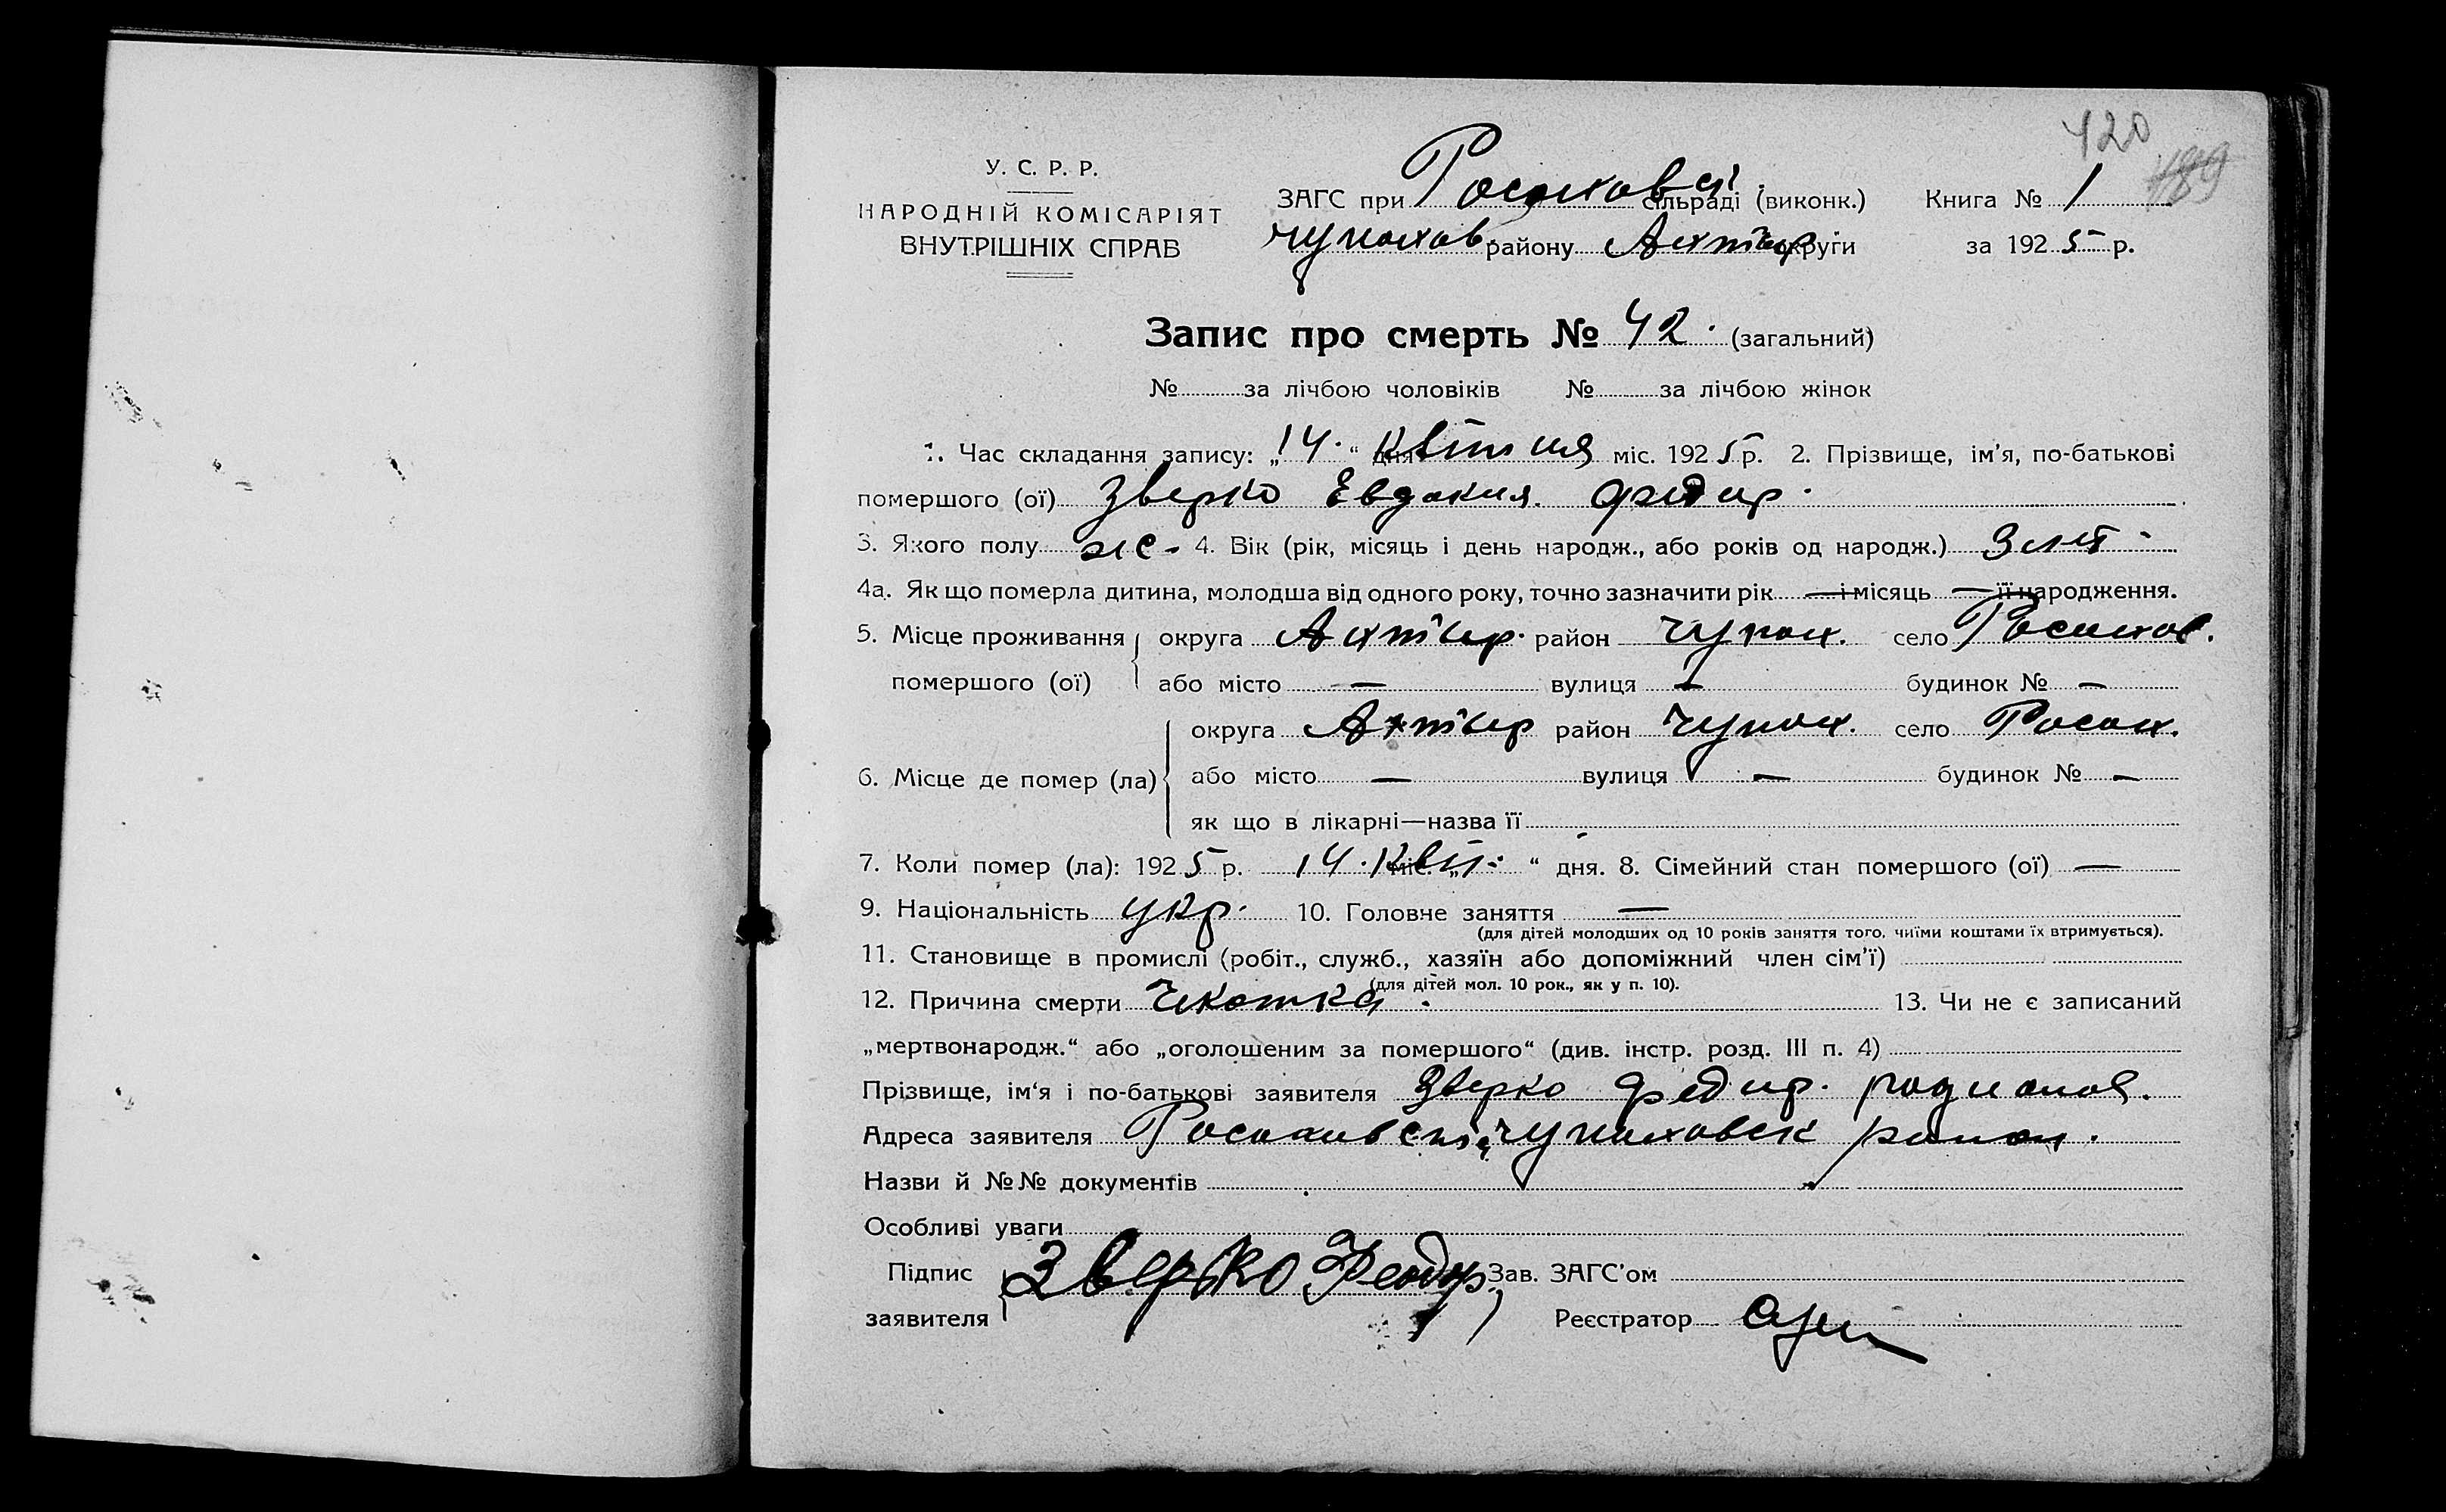 420
189
У. С. Р. Р.
НАРОДНІЙ КОМІСАРІЯТ
ВНУТРІШНІХ СПРАВ
ЗАГС при Росоховсі сільраді (виконк.) Книга № 1
Чупахов. району Ахтир. округи за 1925 р.
Запис про смерть № 42. (загальний)
№ за лічбою чоловіків № за лічбою жінок
1. Час складання запису: „14.“ дня Квітня міс. 1925 р. 2. Прізвище, ім'я, по-батькові
помершого (ої) Зверко Евдокия. Федир.
3. Якого полу ж. 4. Вік (рік, місяць і день народж., або років од народж.) 3 лет
4а. Як що померла дитина, молодша від одного року, точно зазначити рік — і місяць — її народження.
5. Місце проживання округа Ахтир. район Чупах. село Росохов.
помершого (ої) або місто — вулиця — будинок № —
округа Ахтир район Чупах. село Росох.
6. Місце де помер (ла) або місто — вулиця — будинок № —
як що в лікарні—назва її
7. Коли помер (ла): 1925 р. 14. Квіт. міс. „ “ дня. 8. Сімейний стан помершого (ої) —
9. Національність укр. 10. Головне заняття —
(для дітей молодших од 10 років заняття того, чиїми коштами їх втримується).
11. Становище в промислі (робіт., служб., хазяїн або допоміжний член сім'ї)
(для дітей мол. 10 рок., як у п. 10).
12. Причина смерти Чехотка. 13. Чи не є записаний
„мертвонародж.“ або „оголошеним за помершого“ (див. інстр. розд. III п. 4)
Прізвище, ім'я і по-батькові заявителя Зверко Федир. Родионов.
Адреса заявителя Чупаховск район.
Назви й №№ документів
Особливі уваги
Підпис Зверко Феодор Зав. ЗАГС'ом
заявителя Реєстратор